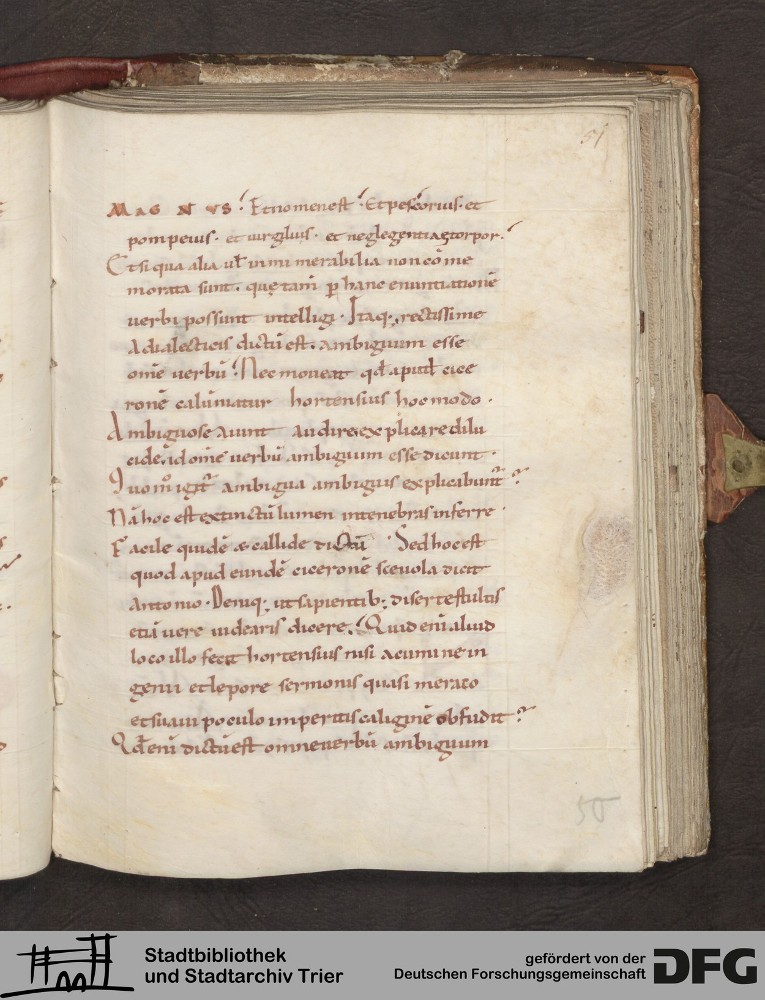 51
MAGNVS. Et nomen est. Et pes & orius. et
pompeius. et uirgilius. et neglegentiae torpor.
Et si qua alia ul̄ innumerabilia non cōme
morata sunt. quę tam̄ ꝑ hanc enuntiationē
uerbi possunt intelligi. Itaq; rectissime
a dialecticis dictū est. ambiguum esse
om̄e uerbū. Nec moueat qd̄ apud cice
ronē calūniatur hortensius hoc modo.
Ambigua se aiunt audire explicare dilu
cide. id om̄e uerbū ambiguum esse dicunt.
Quom̊ igit̄ ambigua ambiguis explicabunt?
Nā hoc est extinctū lumen in tenebras inferre.
Facile quidē & callide dictū. Sed hoc est
quod apud eundē ciceronē sceuola dicit
antonio. Deniq; ut sapientib; diserte stultis
etiā uere uidearis dicere. Quid enī aliud
loco illo fecit hortensius nisi acumine in
genii et lepore sermonis quasi meraco
et suaui poculo imperitis caliginē obfudit?
Qd̄ enī dictū est omne uerbū ambiguum
50
Stadtbibliothek
und Stadtarchiv Trier
gefördert von der
Deutschen Forschungsgemeinschaft
DFG